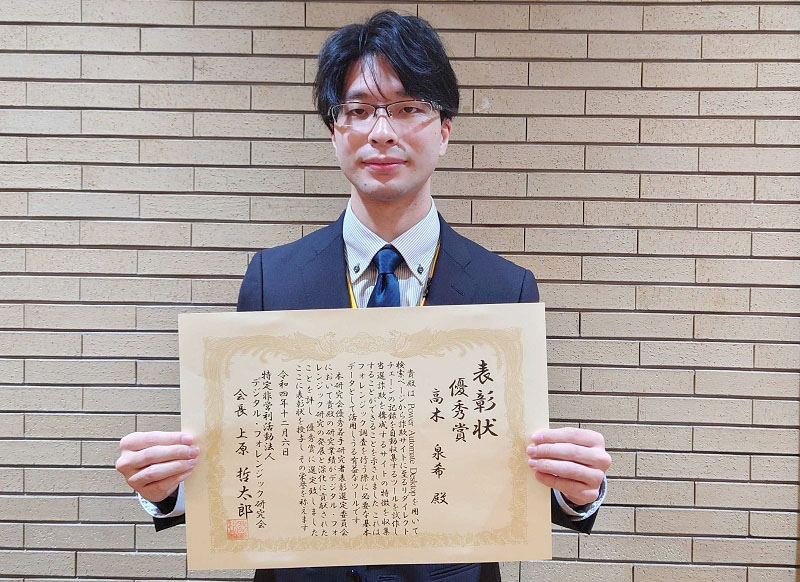 表彰状
優秀賞
高木 泉希 殿
貴殿は Power Automate Desktop を用いて
検索ページから詐欺サイトに至るリダイレクト
チェーンの記録を自動収集するツールを試作し
当選詐欺を構成するサイトの特徴を収集
することができることを示されました これは
フォレンジック調査を行う際に必要な基本
データとして活用しうる有益なツールです
本研究会優秀若手研究者表彰選定委員会
において貴殿の研究業績がデジタル・フォ
レンジック研究の発展と深化に貢献された
ことを評し 優秀賞に選定致しました
ここに表彰状を授与し その栄誉を称えます
令和四年十二月六日
特定非営利活動法人
デジタル・フォレンジック研究会
会長 上原 哲太郎